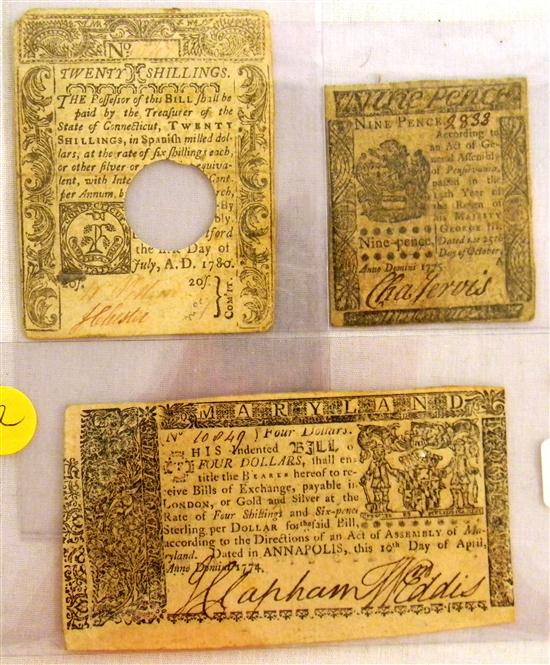 No
TWENTY SHILLINGS.
THE Possessor of this BILL shall be
paid by the Treasurer of the
State of Connecticut, TWENTY
SHILLINGS, in Spanish milled dol-
lars, at the rate of six shillings each,
or other silver or equiva-
lent, with Inte Cent.
per Annum, b rch,
By
bly.
ford
the Day of
July, A.D. 1780.
20s. 20s.
COMTT.
NINE PENCE
NINE PENCE. 9833
According to
an Act of Ge-
neral Assembly
of Pensylvania,
passed in the
Year of
the Reign of
his MAJESTY
GEORGE III.
Nine-pence. Dated the 25th
Day of October,
Anno Domini 1775.
Cha Jervis
MARYLAND
No 10849 Four Dollars.
THIS Indented BILL
of FOUR DOLLARS, shall en-
title the BEARER hereof to re-
ceive Bills of Exchange, payable in
LONDON, or Gold and Silver at the
Rate of Four Shillings and Six-pence
Sterling per DOLLAR for the said Bill,
according to the Directions of an Act of ASSEMBLY of Ma-
ryland. Dated in ANNAPOLIS, this 10th Day of April,
Anno Domini 1774.
J Clapham W Eddis